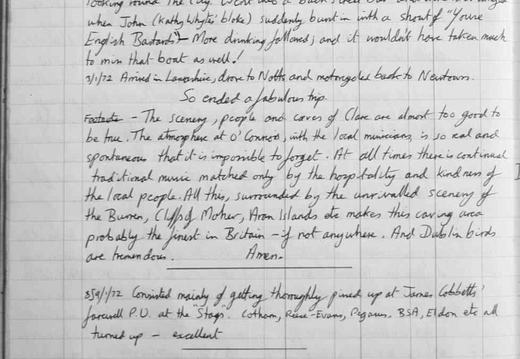 looking round the city. Went into a
when John (Kathy Whyte's bloke) suddenly burst in with a shout of "You're
English Bastards" - More drinking followed, and it wouldn't have taken much
to miss that boat as well!
3/1/72 Arrived in Lancashire, drove to Notts and motorcycled back to Newtown.
So ended a fabulous trip.
Footnote - The scenery, people and caves of Clare are almost too good to
be true. The atmosphere at O'Connors, with the local musicians, is so real and
spontaneous that it is impossible to forget. At all times there is continual
traditional music matched only by the hospitality and kindness of
the local people. All this, surrounded by the unrivalled scenery of
the Burren, Cliffs of Moher, Aran Islands etc makes this caving area
probably the finest in Britain - if not anywhere. And Dublin birds
are tremendous. Amen.
8/9/1/72 Consisted mainly of getting thoroughly pissed up at James Cobbetts'
farewell P.U. at the Stags. Cotham, Reese-Evans, Pegasus, BSA, Eldon etc all
turned up - excellent